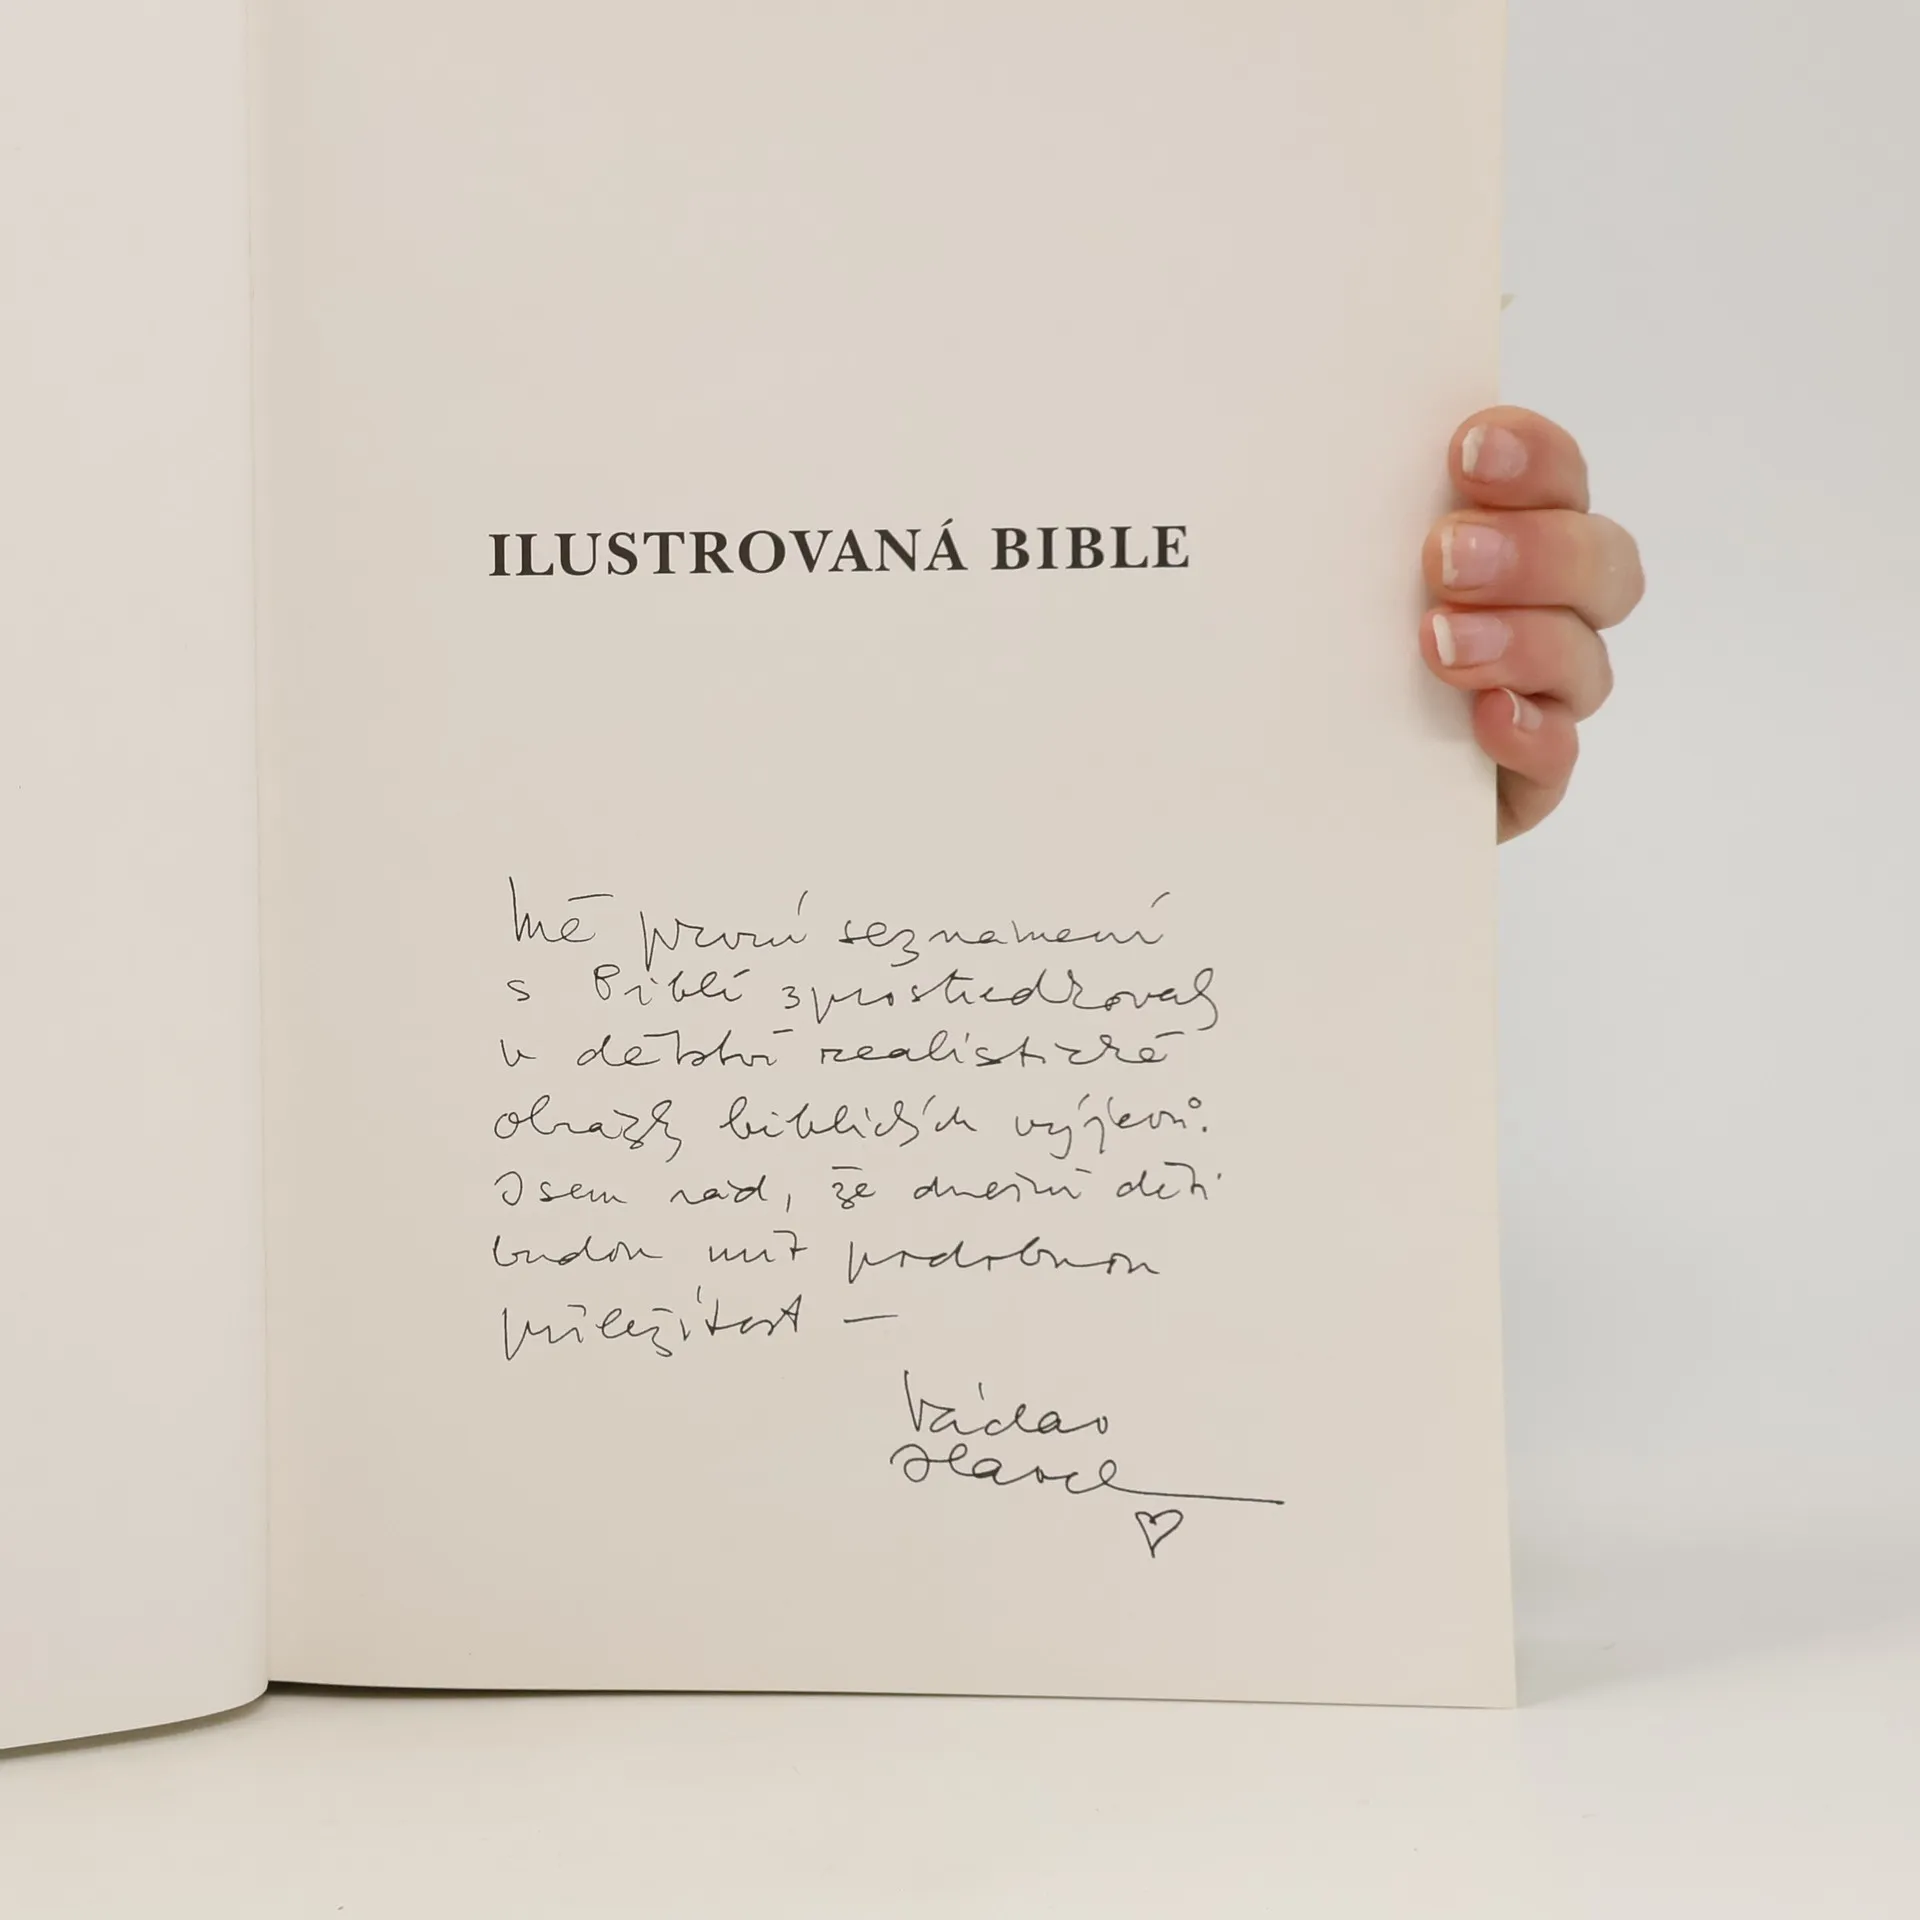 ILUSTROVANÁ BIBLE
Mé první seznámení
s Biblí zprostředkovaly
v dětství realistické
obrázky biblických výjevů.
Jsem rád, že dnešní děti
budou mít podobnou
příležitost —
Václav
Havel